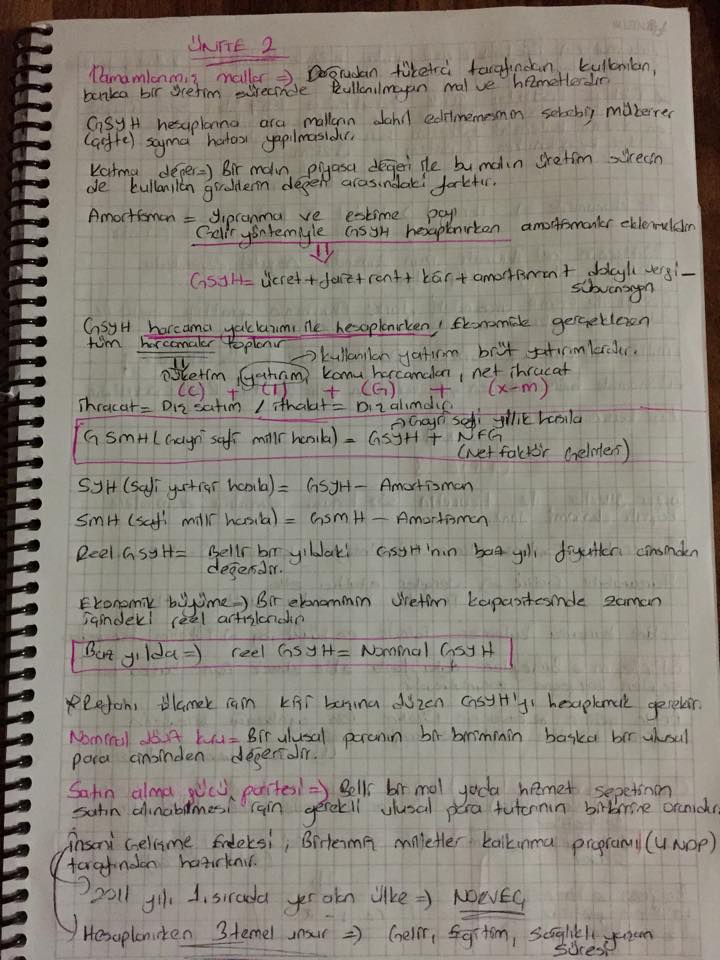 ÜNİTE 2
Tamamlanmış mallar => Doğrudan tüketici tarafından kullanılan,
başka bir üretim sürecinde kullanılmayan mal ve hizmetlerdir.
GSYH hesaplarına ara malların dahil edilmemesinin sebebi, mükerrer
(çifte) sayma hatası yapılmasıdır.
Katma değer => Bir malın piyasa değeri ile bu malın üretim sürecin
de kullanılan girdilerin değeri arasındaki farktır.
Amortisman = Yıpranma ve eskime payı
Gelir yöntemiyle GSYH hesaplanırken amortismanlar eklenmelidir
GSYH = ücret + faiz + rant + kâr + amortisman + dolaylı vergi -
sübvansiyon
GSYH harcama yaklaşımı ile hesaplanırken, Ekonomide gerçekleşen
tüm harcamalar toplanır
kullanılan yatırım brüt yatırımlardır.
Tüketim, yatırım, kamu harcamaları, net ihracat
(C) + (I) + (G) + (x-m)
ihracat = Dış satım / ithalat = Dış alımdır.
Gayri safi yıllık hasıla
GSMH (Gayri safi milli hasıla) = GSYH + NFG
(Net faktör Gelirleri)
SYH (safi yurtiçi hasıla) = GSYH - Amortisman
SMH (safi milli hasıla) = GSMH - Amortisman
Reel GSYH = Belli bir yıldaki GSYH'nin baz yılı fiyatları cinsinden
değeridir.
Ekonomik büyüme => Bir ekonominin üretim kapasitesinde zaman
içindeki reel artışlarıdır.
Baz yılda => reel GSYH = Nominal GSYH
*Refahı ölçmek için kişi başına düşen GSYH'yı hesaplamak gerekir.
Nominal döviz kuru = Bir ulusal paranın bir biriminin başka bir ulusal
para cinsinden değeridir.
Satın alma gücü paritesi => Belli bir mal yada hizmet sepetinin
satın alınabilmesi için gerekli ulusal para tutarının birbirine oranıdır.
İnsani Gelişme Endeksi, Birleşmiş milletler kalkınma programı (UNDP)
tarafından hazırlanır.
2011 yılı 1. sırada yer alan ülke => NORVEÇ
Hesaplanırken 3 temel unsur => Gelir, Eğitim, Sağlıklı yaşam
süresi